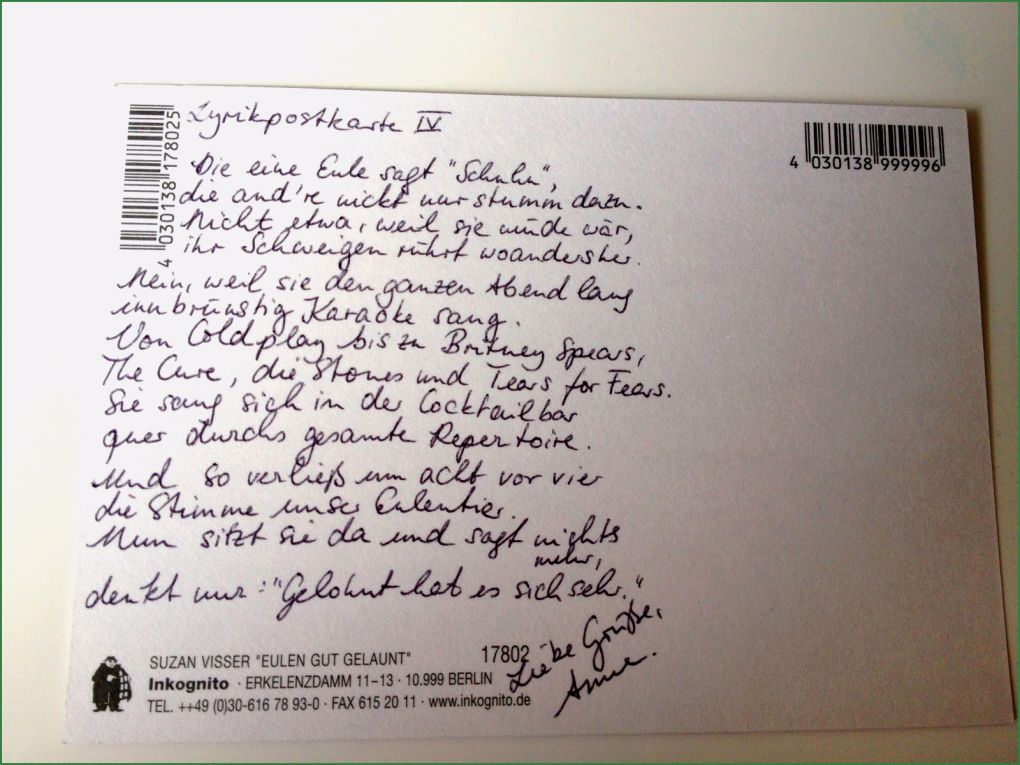 Lyrikpostkarte IV
4 030138 178025
4 030138 999996
Die eine Eule sagt "Schuhu",
die and're nickt nur stumm dazu.
Nicht etwa, weil sie müde wär,
ihr Schweigen rührt woanders her.
Nein, weil sie den ganzen Abend lang
innbrünstig Karaoke sang.
Von Coldplay bis zu Britney Spears,
The Cure, die Stones und Tears for Fears.
Sie sang sich in der Cocktailbar
quer durchs gesamte Repertoire.
Und so verließ um acht vor vier
die Stimme unser Eulentier.
Nun sitzt sie da und sagt nichts
mehr,
denkt nur: "Gelohnt hat es sich sehr."
Liebe Grüße,
Anne.
SUZAN VISSER "EULEN GUT GELAUNT" 17802
Inkognito · ERKELENZDAMM 11–13 · 10.999 BERLIN
TEL. ++49 (0)30-616 78 93-0 · FAX 615 20 11 · www.inkognito.de